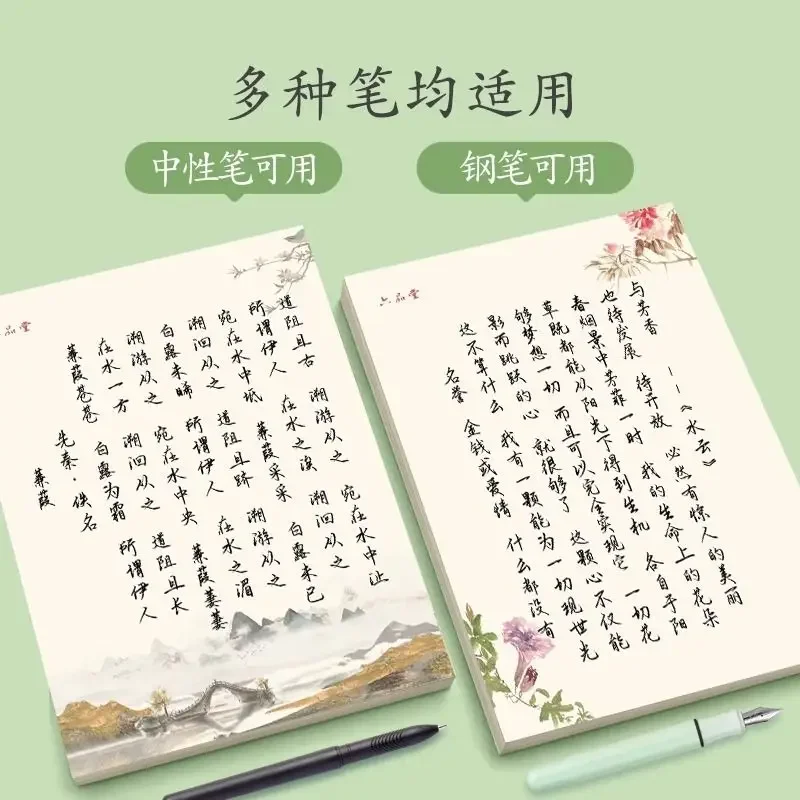 多种笔均适用
中性笔可用
钢笔可用
品堂
蒹葭
先秦·佚名
蒹葭苍苍 白露为霜 所谓伊人
在水一方 溯洄从之 道阻且长
溯游从之 宛在水中央 蒹葭萋萋
白露未晞 所谓伊人 在水之湄
溯洄从之 道阻且跻 溯游从之
宛在水中坻 蒹葭采采 白露未已
所谓伊人 在水之涘 溯洄从之
道阻且右 溯游从之 宛在水中沚
六品堂
名誉 金钱或爱情 什么都没有
这不算什么 我有一颗能为一切现世光
影而跳跃的心 就很够了 这颗心不仅能
够梦想一切 而且可以完全实现它 一切花
草既都能从阳光下得到生机 各自于阳
春烟景中芳菲一时 我的生命上的花朵
也待发展 待开放 必然有惊人的美丽
与芳香 ——《水云》